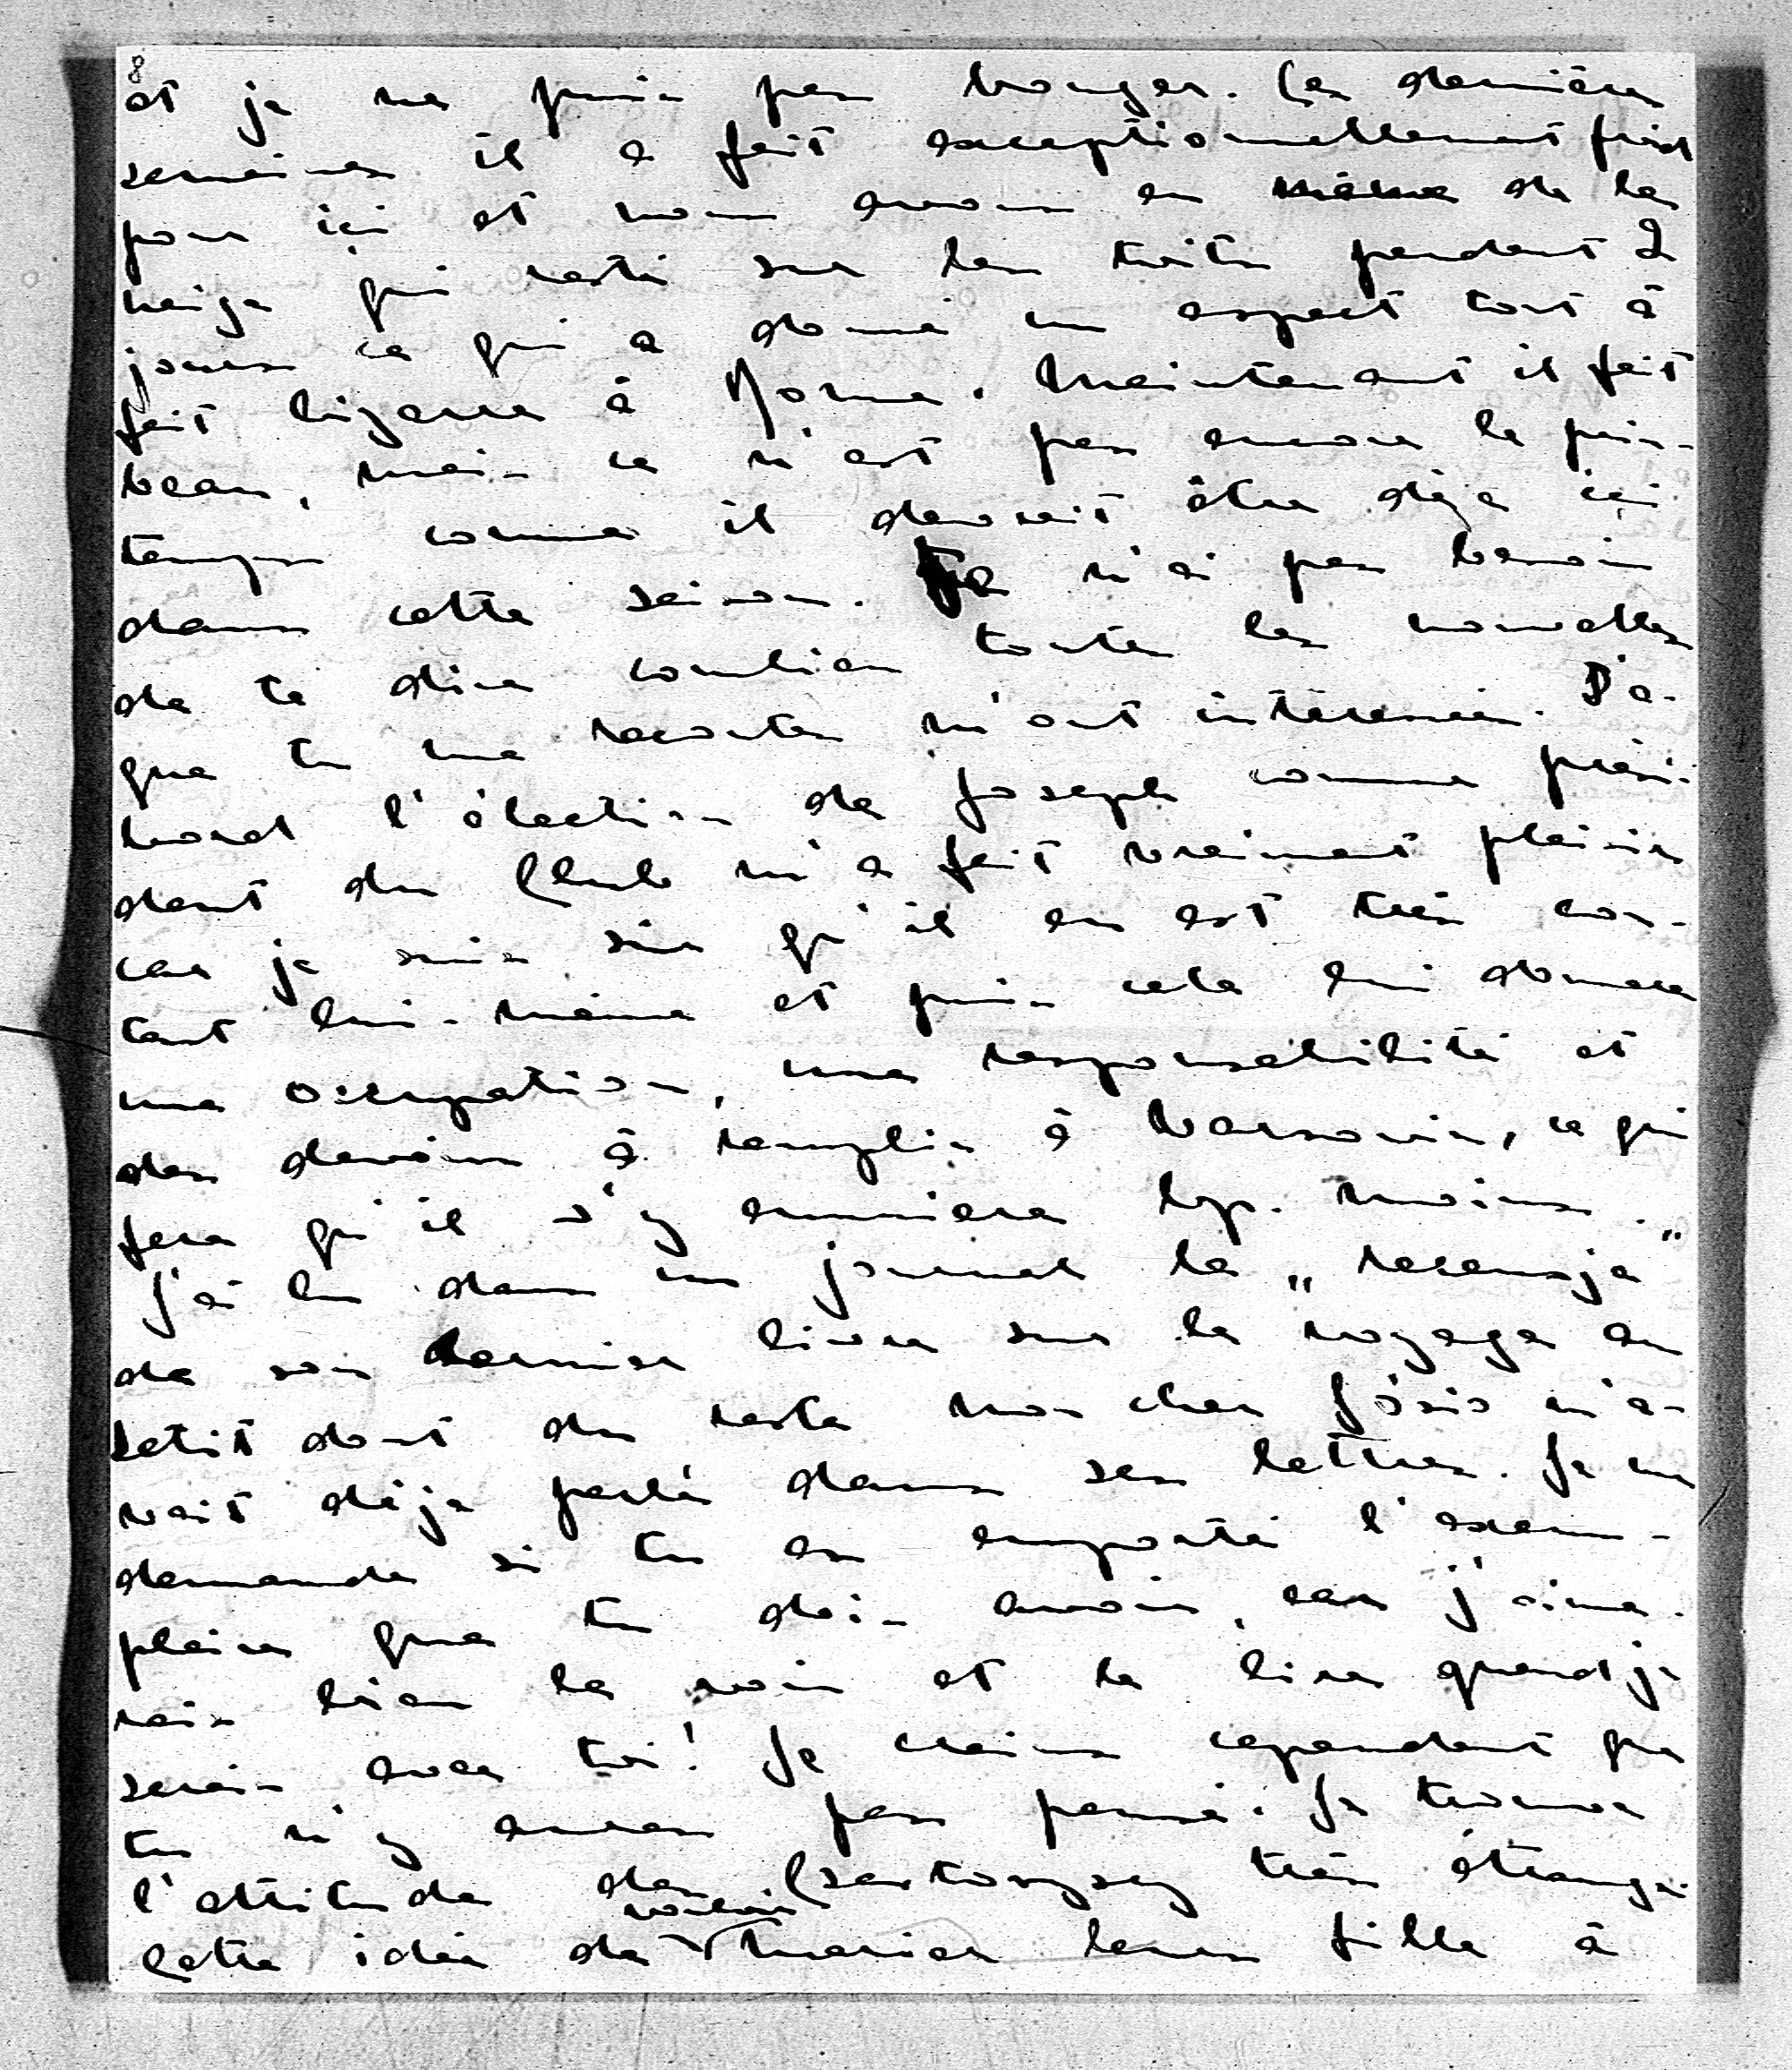 8
et je ne puis pas bouger. Ces dernières
semaines il a fait exceptionnellement froid
pour ici et nous avons eu même de la
neige qui resta sur les toits pendant 2
jours ce qui a donné un aspect tout à
fait bizarre à Rome. Maintenant il fait
beau, mais ce n'est pas encore le prin-
temps comme il devrait être déjà ici
dans cette saison. Je n'ai pas besoin
de te dire combien toutes les nouvelles
que tu me racontes m'ont intéressée. D'a-
bord l'élection de Joseph comme prési-
dent du Club m'a fait vraiment plaisir
car je suis sûr qu'il en est très con-
tent lui-même et puis cela lui donnera
une occupation, une responsabilité et
des devoirs à remplir à Varsovie, ce qui
fera qu'il s'y ennuiera bcp. moins.
J'ai lu dans un journal la „recensja"
de son dernier livre sur le voyage au
dont du reste mon cher Józio m'a-
vait déjà parlé dans ses lettres. Je me
demande si tu as emporté l'exem-
plaire que tu dois avoir, car j'aime-
rais bien le voir et le lire quand je
serais avec toi! Je crains cependant que
tu n'y auras pas pensé. Je trouve
l'attitude des Czartoryscy très étrange.
Cette idée de vouloir marier leur fille à